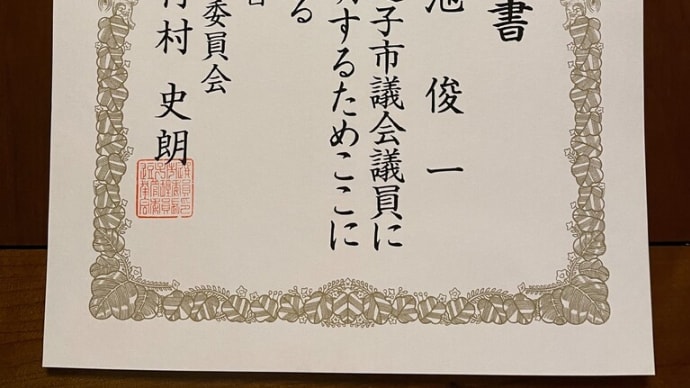 書
池 俊 一
子市議会議員に
するためここに
る
委員会
村 史 朗